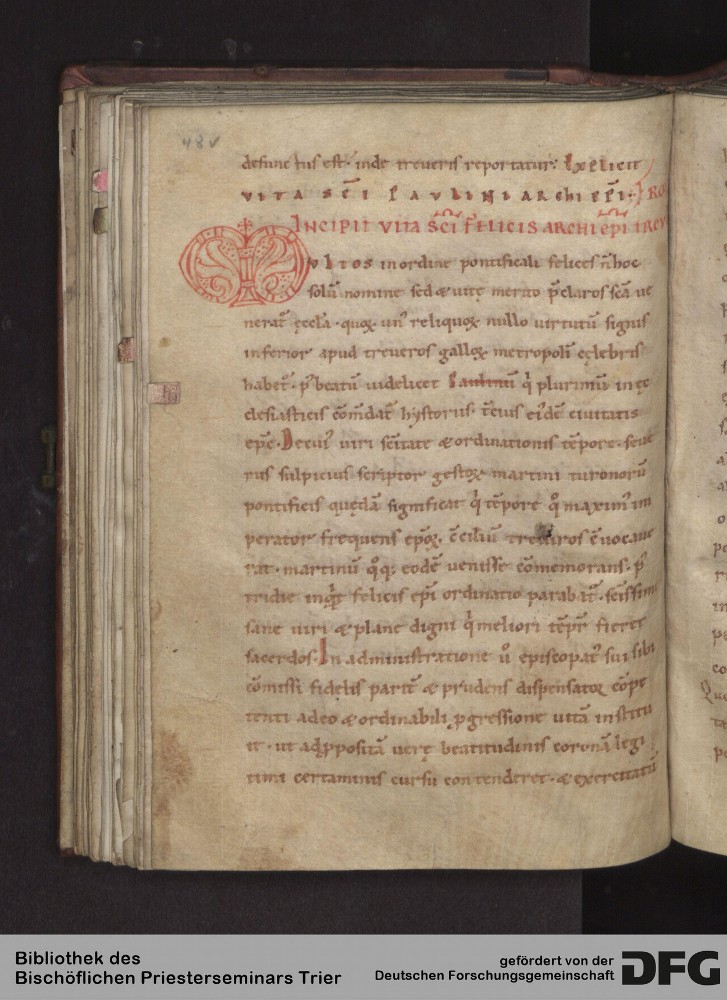 48v
defunctus est· inde treueris reportatur: Explicit
VITA SC̄I PAULINI ARCHIEP̄I·
INCIPIT VITA SC̄I FELICIS ARCHIEP̄I TREV
Multos in ordine pontificali felices n̄ hoc
solū nomine sed & uitę merito p̄claros sc̄a ue
nerat᷑ ęccl̄a· quoꝝ· un᷒ reliquoꝝ nullo uirtutū signis
inferior apud treueros galloꝝ metropolī cęlebris
habet᷑· p᷒ beatū uidelicet Paulinū q̄ plurimū in ęc
clesiasticis cōmdat᷑ hystoriis· t̄cius ei᷒dē ciuitatis
ep̄c· Decui᷒ uiri sc̄itate & ordinationis tēpore· seue
rus sulpicius scriptor gestoꝝ martini turonorū
pontificis quędā significat q̄ tēpore q̊ maxim᷒ im
perator frequens ep̄oꝝ c̄ciliū treuiros euocaue
rat· martinū q̊q; eodē uenisse cōmemorans· p᷒
tridie inq̄t felicis ep̄i ordinatio parabat᷑· sc̄issimi
sane uiri & plane digni q̄ meliori tēpr̄ fieret
sacerdos· In administratione ū episcopat᷒ sui sibi
cōmissi fidelis parit᷑ & prudens dispensator cōpe
tenti adeo & ordinabili ꝓgressione uitā institu
it· ut ad ꝓpositā uerę beatitudinis coronā legi
timi certaminis cursu contenderet· & exercitatū
Bibliothek des
Bischöflichen Priesterseminars Trier
gefördert von der
Deutschen Forschungsgemeinschaft
DFG